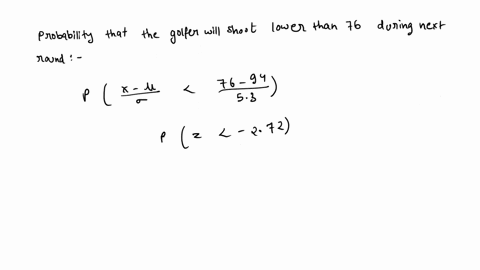 Probability that the golfer will shoot lower than 76 during next
round :-
P ( x - μ / σ < 76 - 94 / 5.3 )
P ( z < - 2.72 )